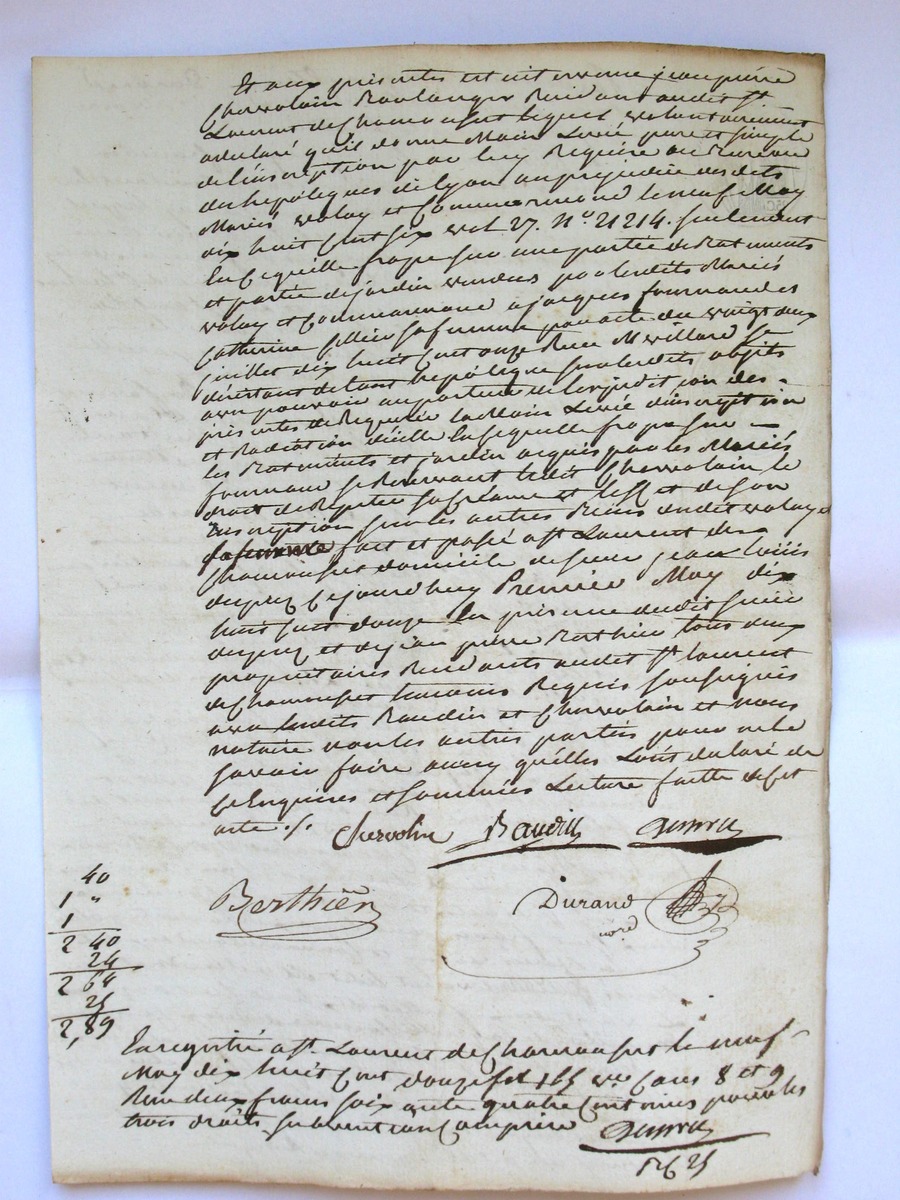 Et aux présentes est intervenu jean pierre
Chervolain Boulanger Residant audit St
Laurent de Chamousset lequel volontairement
a declaré qu'il donne Main Levée pure et simple
de l'inscription par luy Requise au Bureau
des hepoteques de Lyon au prejudice des dits
Mariés Volay et Commarmond le neuf May
dix huit cent six vol 27. N° 21214. seulement
En ce quelle frape sur une partie de Batiments
et partie de jardin vendus par lesdits Mariés
volay et Commarmond a jacques fournand et
Catherine sa femme par acte du vingt deux
juillet dix huit cent onze Reçu Me villard se
désistant de tout hepoteque sur lesdits objets
avec pouvoir au porteur de l'expedition des
présentes de Requerir la Main Levée d'inscription
et Radiation d'icelle en ce quelle frape sur
les Batiments et jardin acquis par les Mariés
fournand se Reservant ledit Chervolain le
droit de Repeter sa creance et l'effet de son
Inscription sur les autres Biens dudit volay et
sa femme fait et passé a St Laurent de
Chamousset domicile de sieur jean Louis
dupuy ce jourd'huy Premier May dix
huit cent douze En présence dudit sieur
dupuy et de jean pierre Berthier tous deux
propriétaires Residants audit St laurent
de Chamousset temoins Requis soussignés
avec lesdits Baudin et Chervolain et nous
notaire non les autres parties pour ne le
savoir faire ainsy qu'elles L'ont declaré de
ce Enquises et sommées Lecture faitte de cet
acte ./.
Chervolin Baudin dupuy
Berthier Durand nore
40
1 "
1
2 40
24
2 64
25
2,89
Enregistré a St. Laurent de Chamousset le neuf
May dix huit cent douze fol 165 vo Cases 8 et 9
Reçu deux francs soixante quatre centimes pour les
trois droits subvention Comprise
dupuy